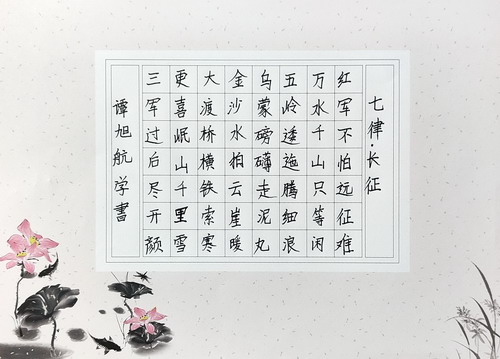 七律·长征
红军不怕远征难
万水千山只等闲
五岭逶迤腾细浪
乌蒙磅礴走泥丸
金沙水拍云崖暖
大渡桥横铁索寒
更喜岷山千里雪
三军过后尽开颜
谭旭航学書